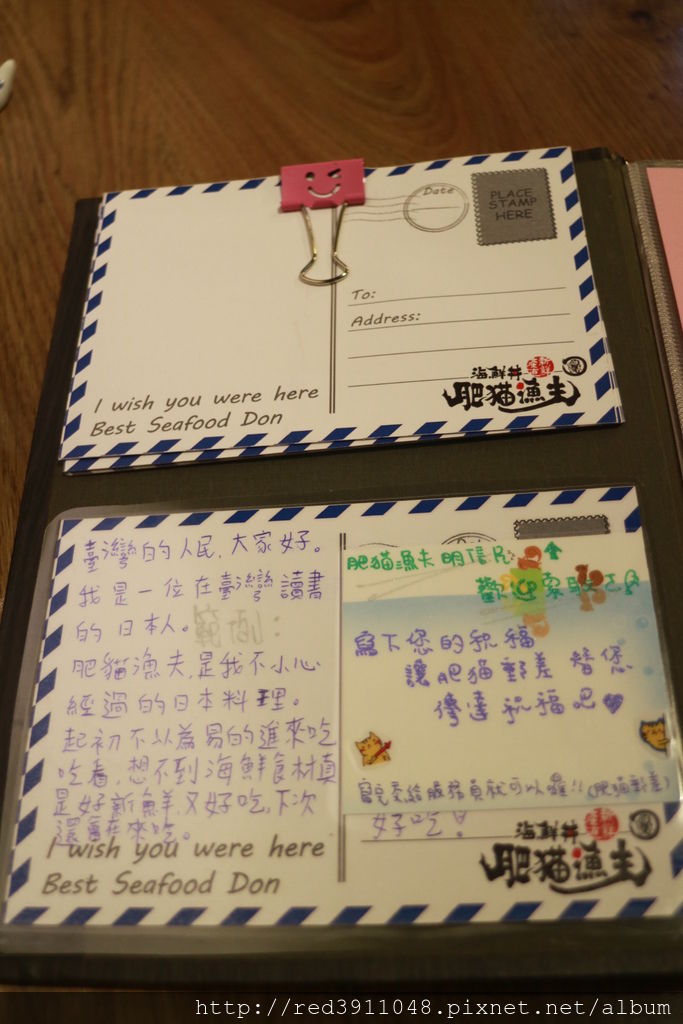 Date
PLACE
STAMP
HERE
To:
Address:
I wish you were here
Best Seafood Don
海鮮丼
肥猫漁夫
臺灣的人民,大家好。
我是一位在臺灣讀書
的日本人。
範例:
肥貓漁夫,是我不小心
經過的日本料理。
起初不以為易的進來吃
吃看,想不到海鮮食材真
是好新鮮,又好吃,下次
還會在來吃。
I wish you were here
Best Seafood Don
肥貓漁夫明信片
歡迎索取
寫下您的祝福
讓肥貓郵差替您
傳達祝福吧♥
寫完交給服務員就可以囉!!(肥貓郵差)
好吃!
海鮮丼
肥猫漁夫
http://red3911048.pixnet.net/album